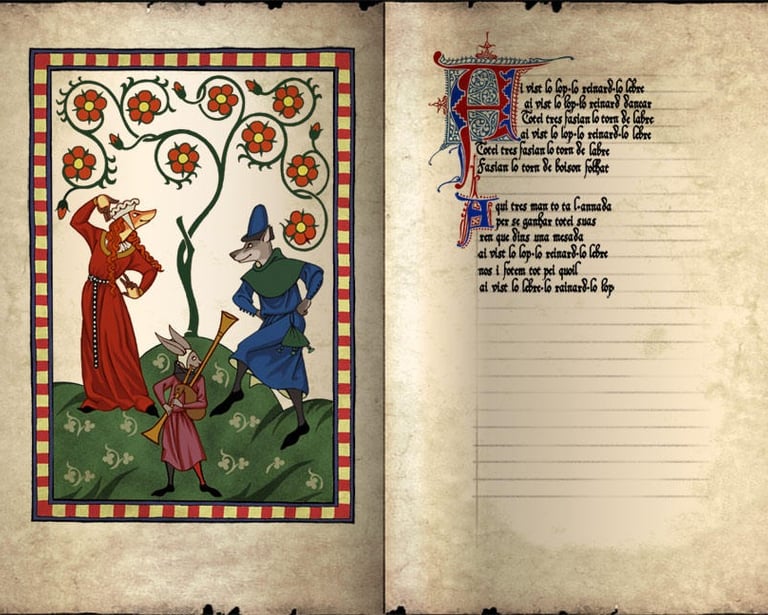 Ai vist lo lop-lo reinard-lo lebre
ai vist lo lop-lo reinard dançar
Totei tres fasian lo torn de labre
ai vist lo lop-lo reinard-lo lebre
Totei tres fasian lo torn de labre
Fasian lo torn de boison folhat
Aqui tres man to ta l-annada
per se ganhar totei suas
ren que dins una mesada
ai vist lo lop-lo reinard-lo lebre
nos i fotem tot pel quoil
ai vist lo lebre-lo rainard-lo lop